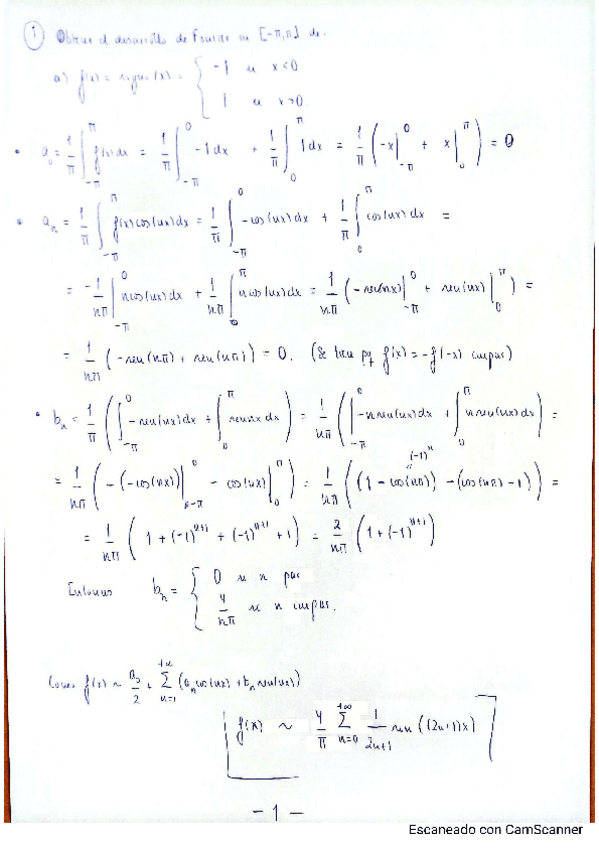 1 Obtener el desarrollo de Fourier en [-π,π] de:
a) f(x) = signo(x) = { -1 si x<0
1 si x>0
• a₀ = 1/π ∫_{-π}^{π} f(x)dx = 1/π ∫_{-π}^{0} -1dx + 1/π ∫_{0}^{π} 1dx = 1/π (-x|_{-π}^{0} + x|_{0}^{π}) = 0
• aₙ = 1/π ∫_{-π}^{π} f(x)cos(nx)dx = 1/π ∫_{-π}^{0} -cos(nx)dx + 1/π ∫_{0}^{π} cos(nx)dx =
= -1/nπ ∫_{-π}^{0} ncos(nx)dx + 1/nπ ∫_{0}^{π} ncos(nx)dx = 1/nπ (-sen(nx)|_{-π}^{0} + sen(nx)|_{0}^{π}) =
= 1/nπ (-sen(nπ) + sen(nπ)) = 0. f(x) = -f(-x) impar)
• bₙ = 1/π (∫_{-π}^{0} -sen(nx)dx + ∫_{0}^{π} sennx dx) = 1/nπ (∫_{-π}^{0} -nsen(nx)dx + ∫_{0}^{π} nsen(nx)dx) =
(-1)ⁿ
= 1/nπ (-(-cos(nx))|_{-π}^{0} - cos(nx)|_{0}^{π}) = 1/nπ ((1 - cos(nπ)) - (cos(nπ) - 1)) =
= 1/nπ (1 + (-1)^{n+1} + (-1)^{n+1} + 1) = 2/nπ (1 + (-1)^{n+1})
Entonces bₙ = { 0 si n par
4/nπ si n impar.
Como f(x) ~ a₀/2 + Σ_{n=1}^{+∞} (aₙcos(nx) + bₙsen(nx))
f(x) ~ 4/π Σ_{n=0}^{+∞} 1/2n+1 sen((2n+1)x)
- 1 -
Escaneado con CamScanner